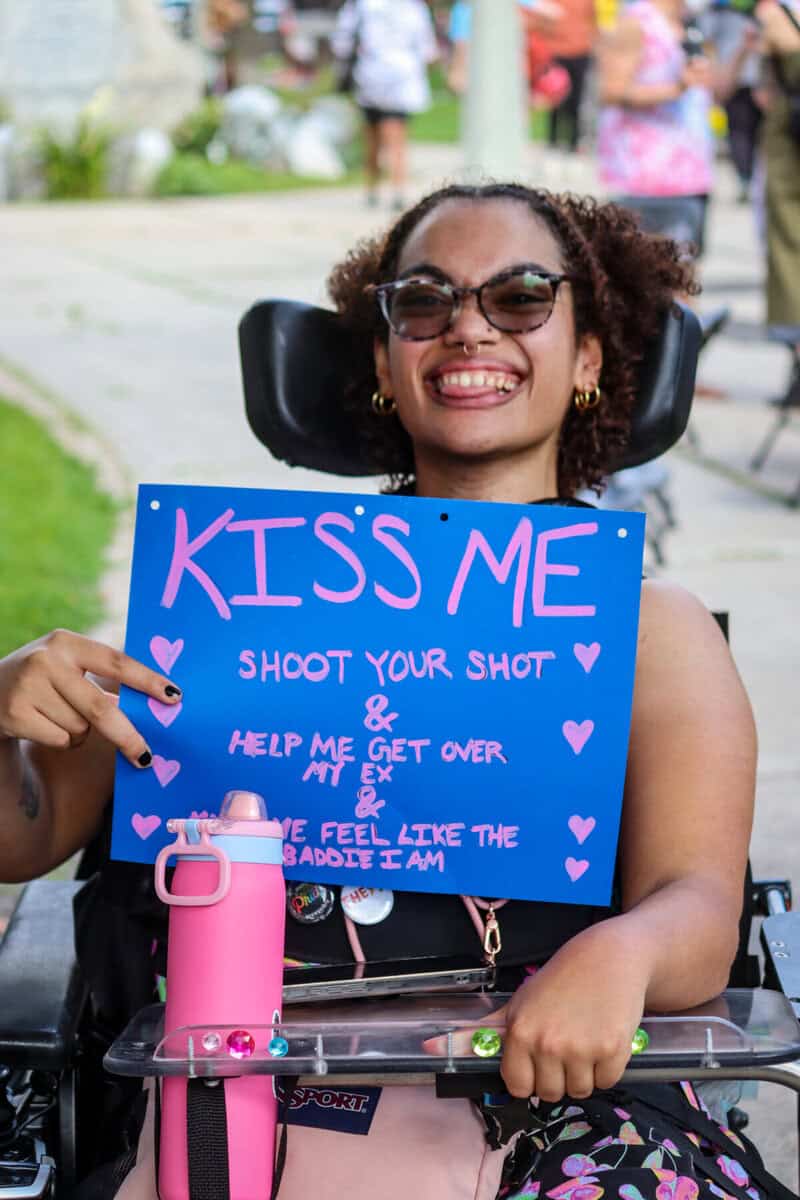 KISS ME
SHOOT YOUR SHOT
&
HELP ME GET OVER
MY EX
&
ME FEEL LIKE THE
BADDIE I AM
Pride
THEY
SPORT